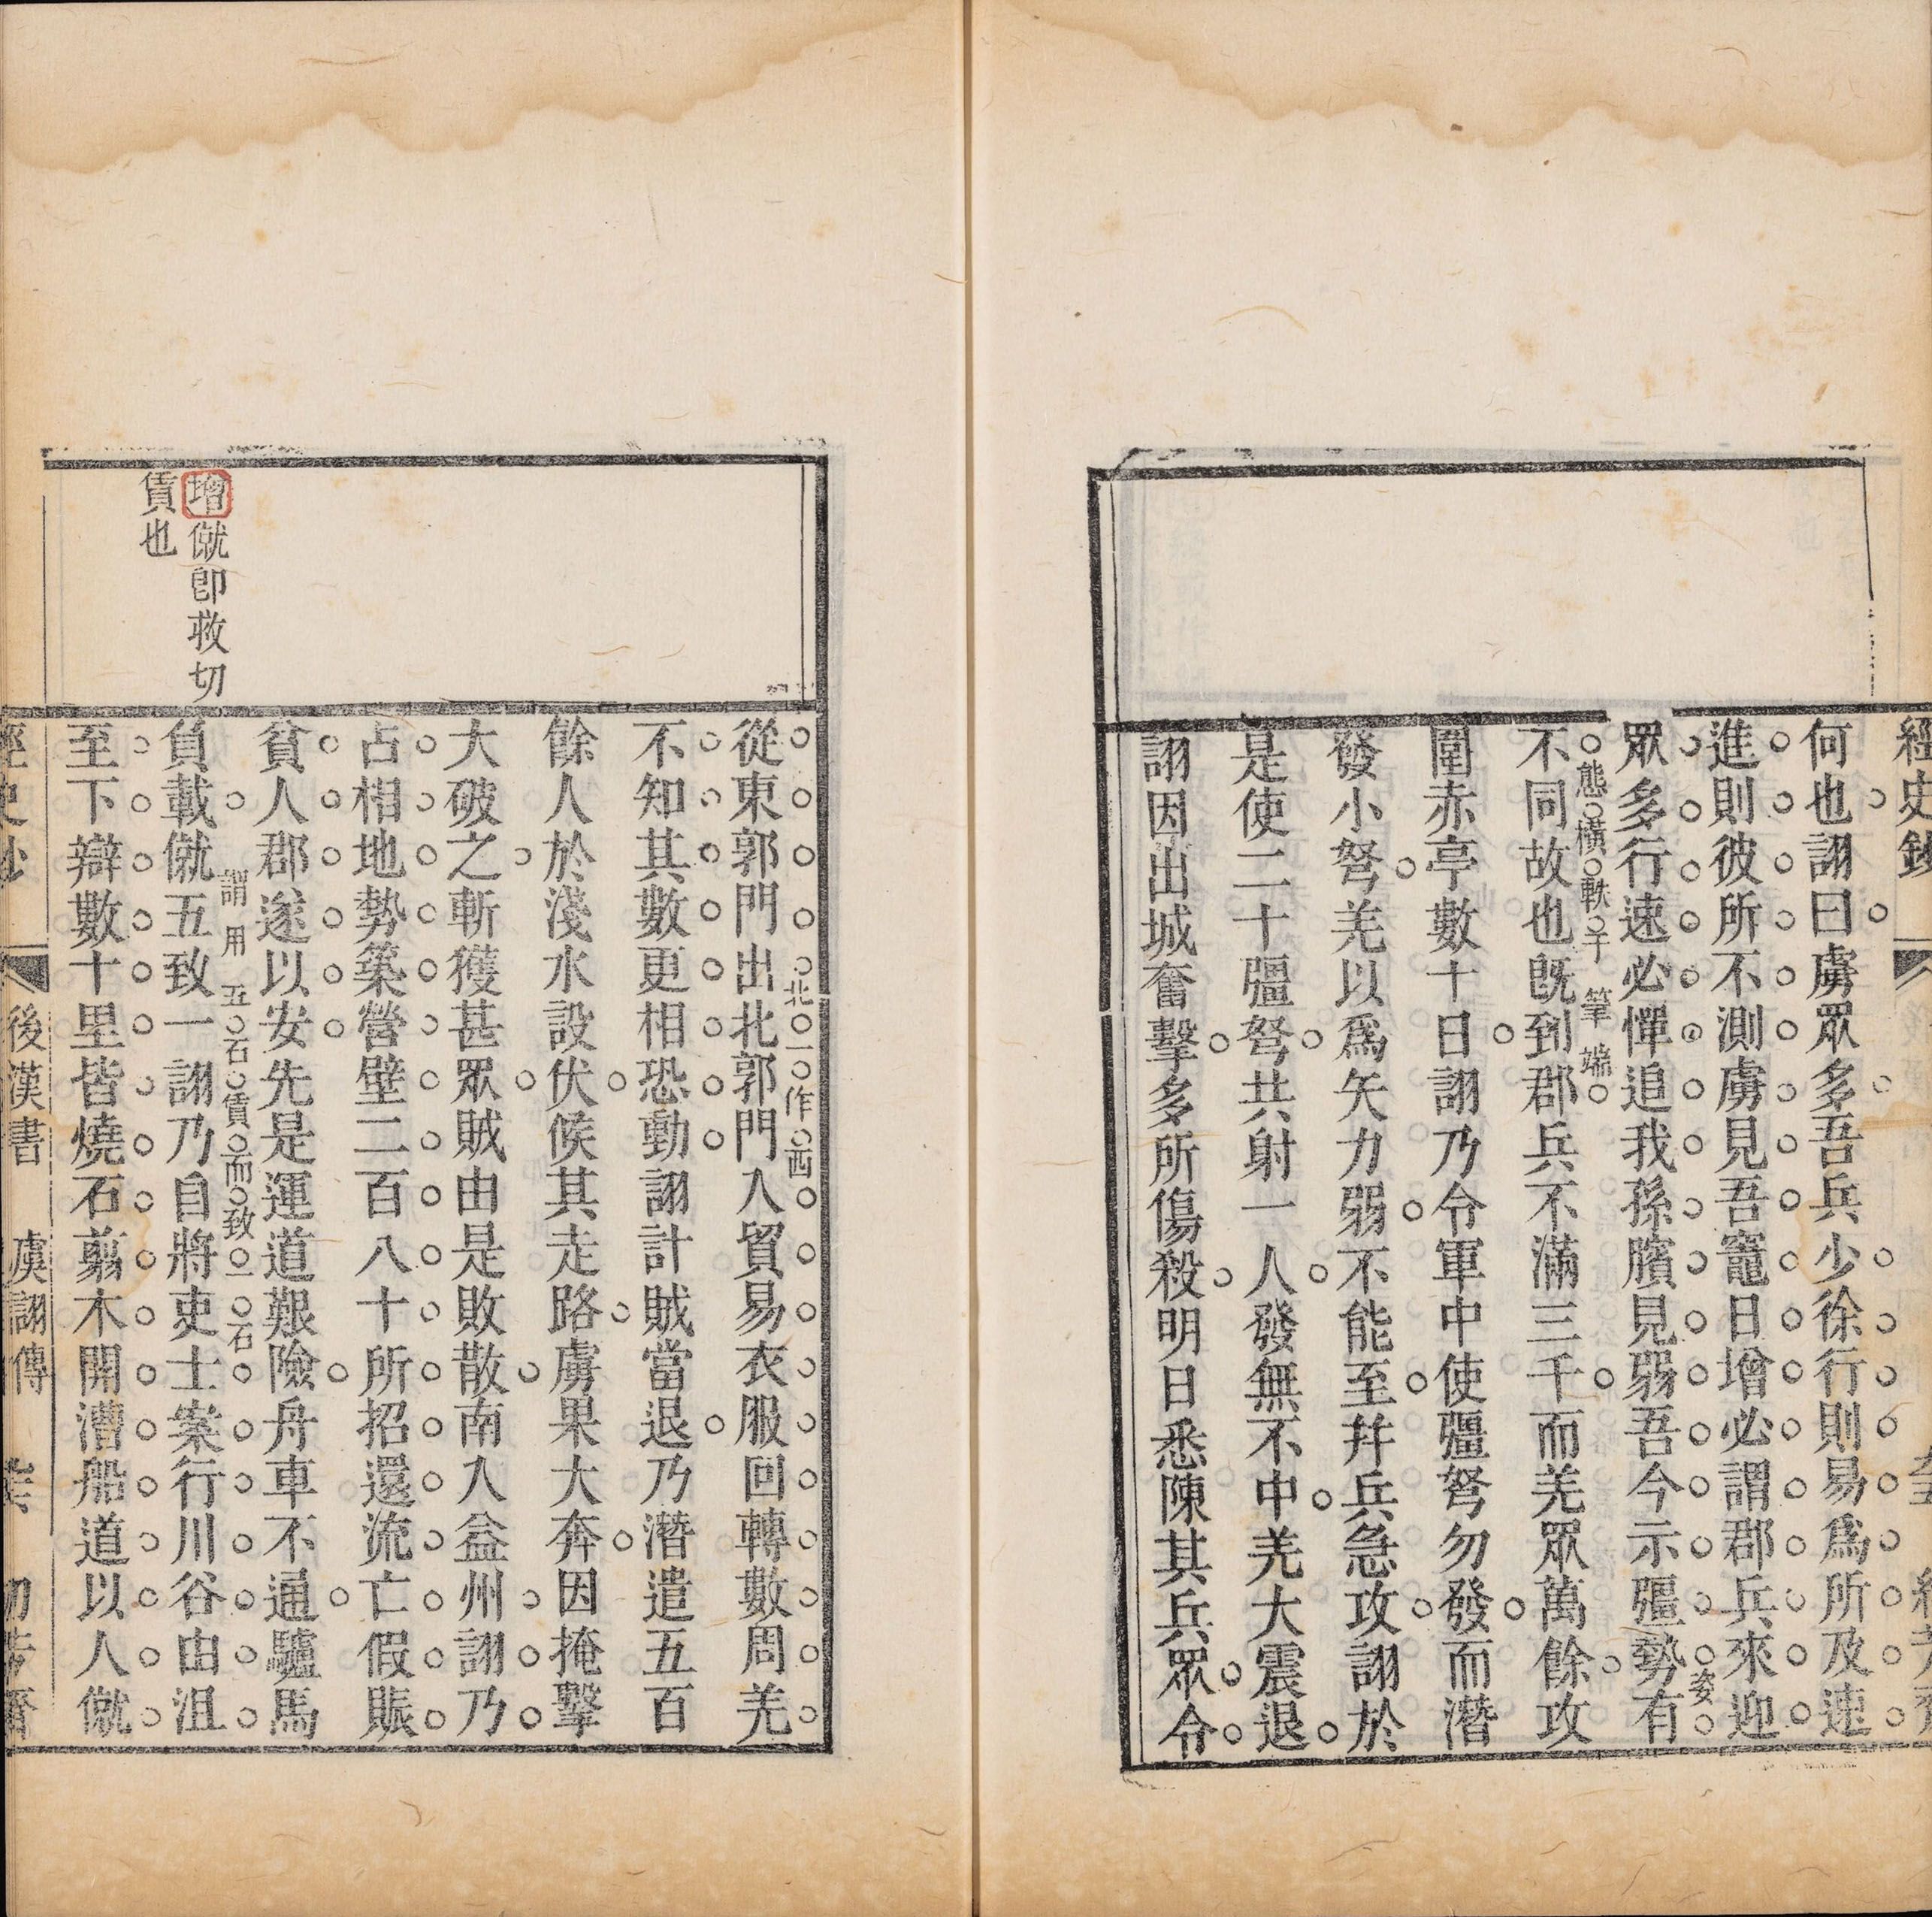 經史鈔
何也詡曰虜眾多吾兵少徐行則易爲所及速
進則彼所不測虜見吾竈日增必謂郡兵來迎
眾多行速必憚追我孫臏見弱吾今示彊勢有
姿
態橫軼于筆端
不同故也旣到郡兵不滿三千而羌眾萬餘攻
圍赤亭數十日詡乃令軍中使彊弩勿發而潛
發小弩羌以爲矢力弱不能至幷兵急攻詡於
是使二十彊弩共射一人發無不中羌大震退
詡因出城奮擊多所傷殺明日悉陳其兵眾令
北一作西
從東郭門出北郭門入貿易衣服回轉數周羌
不知其數更相恐動詡計賊當退乃潛遣五百
餘人於淺水設伏候其走路虜果大奔因掩擊
大破之斬獲甚眾賊由是敗散南入益州詡乃
占相地勢築營壁二百八十所招還流亡假賑
貧人郡遂以安先是運道艱險舟車不通驢馬
謂用五石賃而致一石
負載僦五致一詡乃自將吏士案行川谷由沮
至下辯數十里皆燒石翦木開漕船道以人僦
增僦卽救切
賃也
後漢書 虞詡傳